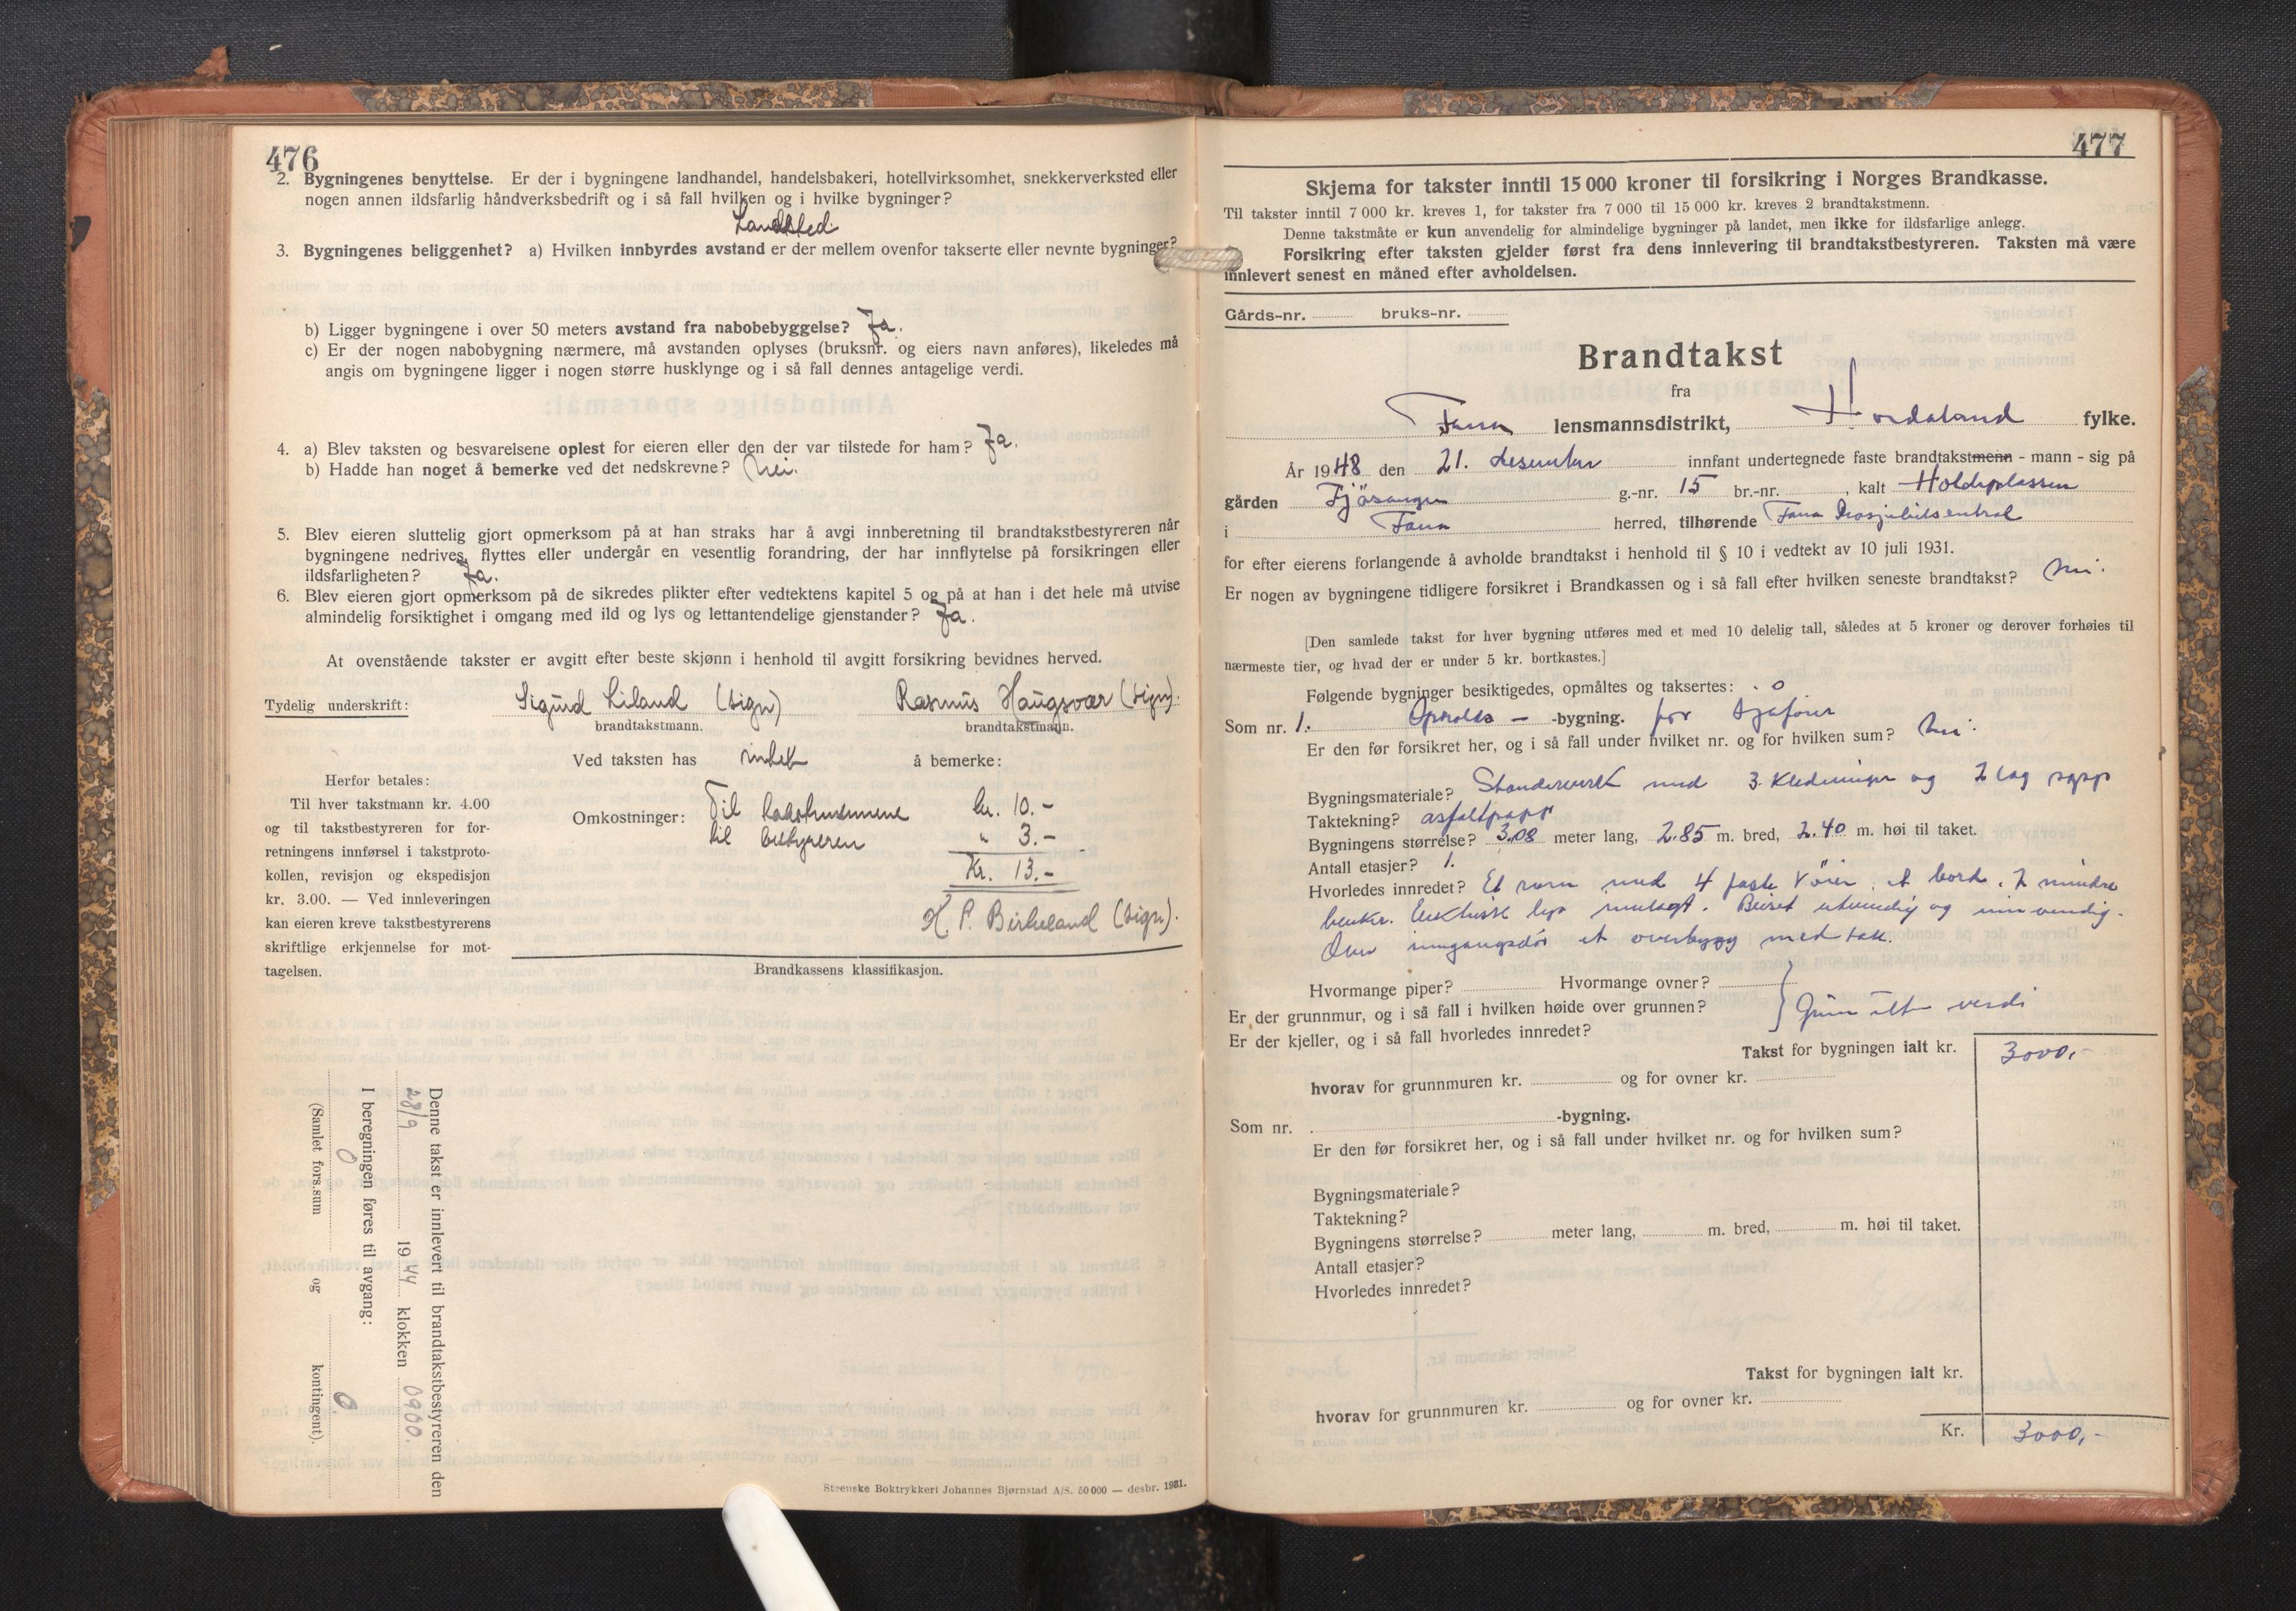 476
2. Bygningenes benyttelse. Er der i bygningene landhandel, handelsbakeri, hotellvirksomhet, snekkerverksted eller
nogen annen ildsfarlig håndverksbedrift og i så fall hvilken og i hvilke bygninger?
Landsted
3. Bygningenes beliggenhet? a) Hvilken innbyrdes avstand er der mellem ovenfor takserte eller nevnte bygninger?
b) Ligger bygningene i over 50 meters avstand fra nabobebyggelse? Ja.
c) Er der nogen nabobygning nærmere, må avstanden oplyses (bruksnr. og eiers navn anføres), likeledes må
angis om bygningene ligger i nogen større husklynge og i så fall dennes antagelige verdi.
4. a) Blev taksten og besvarelsene oplest for eieren eller den der var tilstede for ham? Ja.
b) Hadde han noget å bemerke ved det nedskrevne? Nei.
5. Blev eieren sluttelig gjort opmerksom på at han straks har å avgi innberetning til brandtakstbestyreren når
bygningene nedrives, flyttes eller undergår en vesentlig forandring, der har innflytelse på forsikringen eller
ildsfarligheten? Ja.
6. Blev eieren gjort opmerksom på de sikredes plikter efter vedtektens kapitel 5 og på at han i det hele må utvise
almindelig forsiktighet i omgang med ild og lys og lettantendelige gjenstander? Ja.
At ovenstående takster er avgitt efter beste skjønn i henhold til avgitt forsikring bevidnes herved.
Tydelig underskrift: Sigurd Liland (sign) Rasmus Haugsvær (sign).
brandtakstmann. brandtakstmann.
Ved taksten has intet å bemerke:
Herfor betales:
Til hver takstmann kr. 4.00
og til takstbestyreren for for-
retningens innførsel i takstproto-
kollen, revisjon og ekspedisjon
kr. 3.00. — Ved innleveringen
kan eieren kreve takstbestyrerens
skriftlige erkjennelse for mot-
tagelsen.
Omkostninger: Til takstmennene kr. 10.-
til bestyreren " 3.-
Kr. 13.-
H. P. Birkeland (sign).
Brandkassens klassifikasjon.
Denne takst er innlevert til brandtakstbestyreren den
28/9 1944 klokken 0900.
I beregningen føres til avgang:
0 0
(Samlet fors.sum og kontingent).
Steenske Boktrykkeri Johannes Bjørnstad A/S. 50 000 — desbr. 1931.
477
Skjema for takster inntil 15 000 kroner til forsikring i Norges Brandkasse.
Til takster inntil 7 000 kr. kreves 1, for takster fra 7 000 til 15 000 kr. kreves 2 brandtakstmenn.
Denne takstmåte er kun anvendelig for almindelige bygninger på landet, men ikke for ildsfarlige anlegg.
Forsikring efter taksten gjelder først fra dens innlevering til brandtakstbestyreren. Taksten må være
innlevert senest en måned efter avholdelsen.
Gårds-nr. bruks-nr.
Brandtakst
fra
Fana lensmannsdistrikt, Hordaland fylke.
År 1948 den 21. desember innfant undertegnede faste brandtakstmenn - mann - sig på
gården Fjøsanger g.-nr. 15 br.-nr. , kalt Holdeplassen
i Fana herred, tilhørende Fana
for efter eierens forlangende å avholde brandtakst i henhold til § 10 i vedtekt av 10 juli 1931.
Er nogen av bygningene tidligere forsikret i Brandkassen og i så fall efter hvilken seneste brandtakst? Nei.
[Den samlede takst for hver bygning utføres med et med 10 delelig tall, således at 5 kroner og derover forhøies til
nærmeste tier, og hvad der er under 5 kr. bortkastes.]
Følgende bygninger besiktigedes, opmåltes og taksertes:
Som nr. 1. Opholds - -bygning. for sjåfører
Er den før forsikret her, og i så fall under hvilket nr. og for hvilken sum? Nei.
Bygningsmateriale? Standerverk med 3 kledninger og 2 lag papp
Taktekning? asfaltpapp
Bygningens størrelse? 3.08 meter lang, 2.85 m. bred, 2.40 m. høi til taket.
Antall etasjer? 1.
Hvorledes innredet? Et rom med 4 faste køier, et bord, 2 mindre
benker. Elektrisk lys innlagt. Beiset utvendig og innvendig.
Over inngangsdør et overbygg med tak.
Hvormange piper? Hvormange ovner?
Er der grunnmur, og i så fall i hvilken høide over grunnen?
Er der kjeller, og i så fall hvorledes innredet?
verdi
Takst for bygningen ialt kr. 3000,-
hvorav for grunnmuren kr. og for ovner kr.
Som nr. -bygning.
Er den før forsikret her, og i så fall under hvilket nr. og for hvilken sum?
Bygningsmateriale?
Taktekning?
Bygningens størrelse? meter lang, m. bred, m. høi til taket.
Antall etasjer?
Hvorledes innredet?
Takst for bygningen ialt kr.
hvorav for grunnmuren kr. og for ovner kr.
Kr. 3000,-